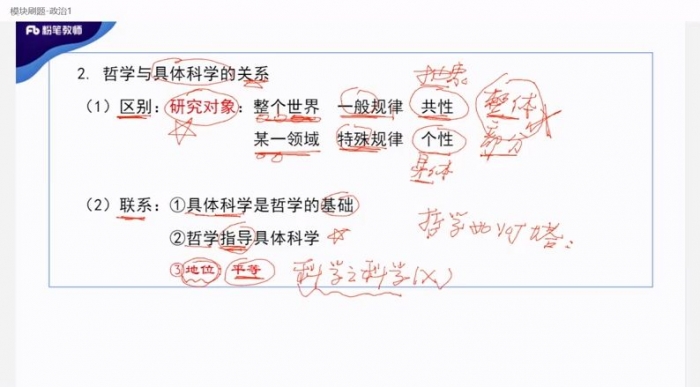 模块刷题-政治1
Fb 粉笔教师
2. 哲学与具体科学的关系
抽象
(1)区别:研究对象:整个世界 一般规律 共性 整体
某一领域 特殊规律 个性 部分
具体
(2)联系:①具体科学是哲学的基础
②哲学指导具体科学
哲学
③地位:平等 科学之科学(X)